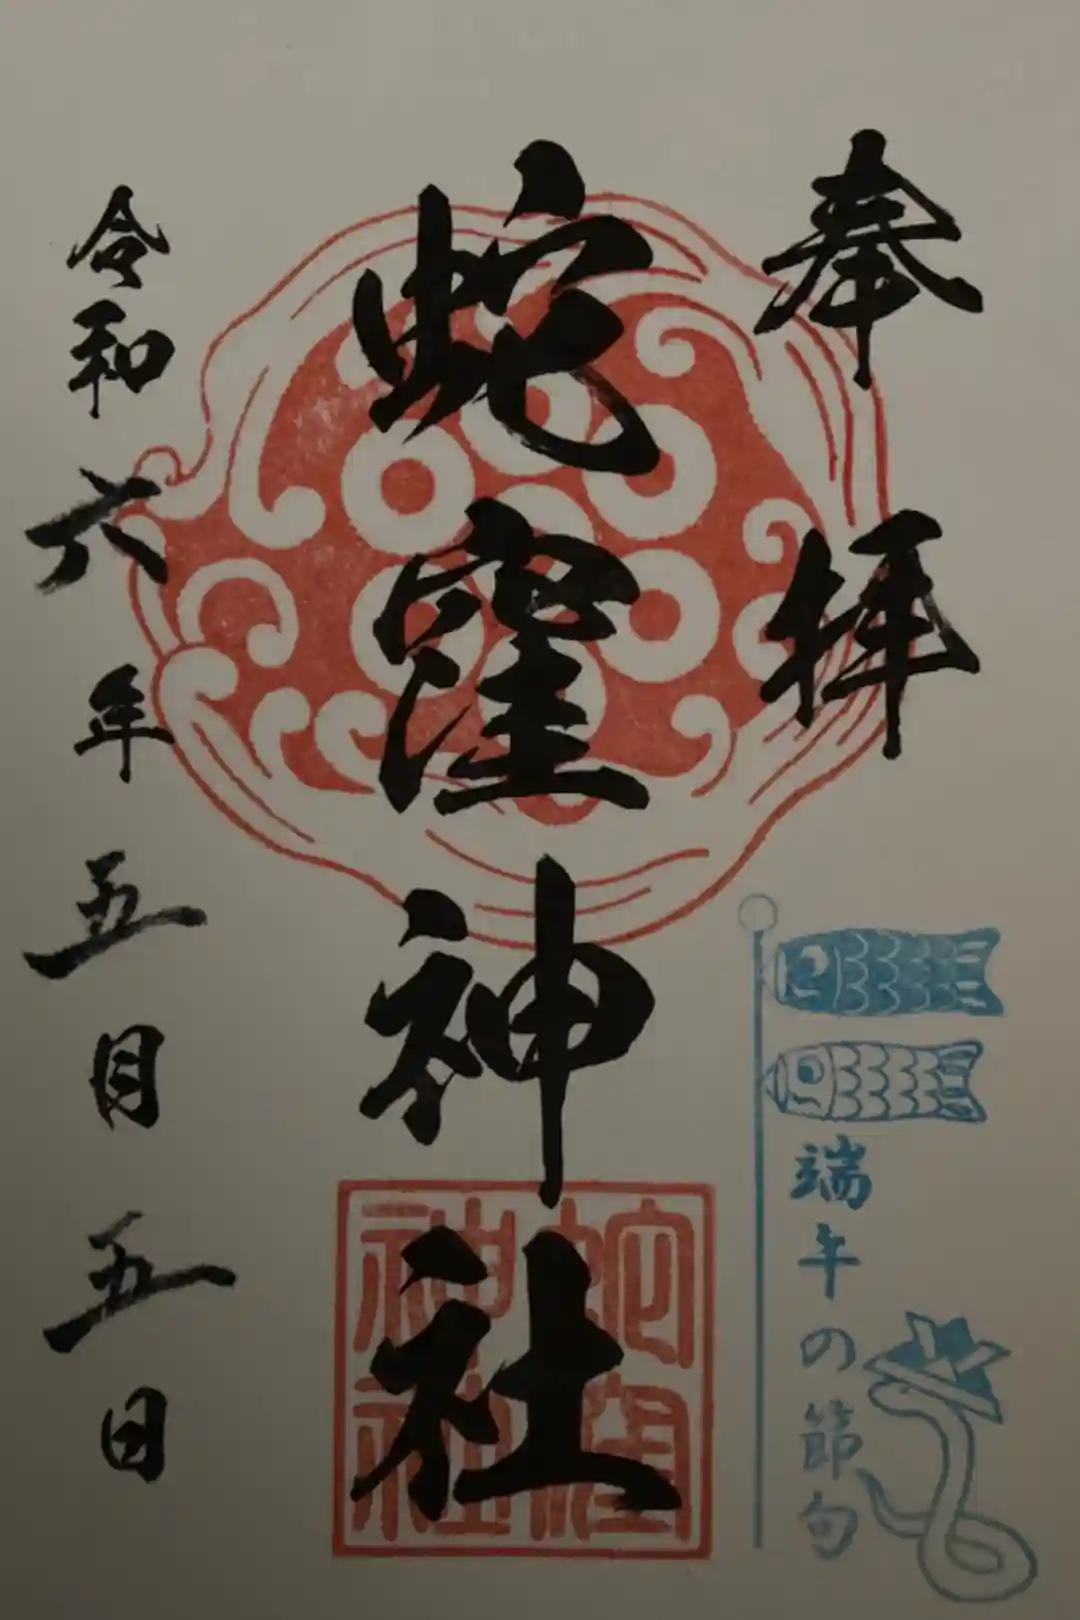 奉拝
蛇窪神社
蛇窪神社
令和六年五月五日
端午の節句